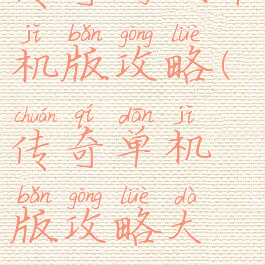 jī bǎn gōng lüè
机版攻略(
chuán qí dān jī
传奇单机
bǎn gōng lüè dà
版攻略大